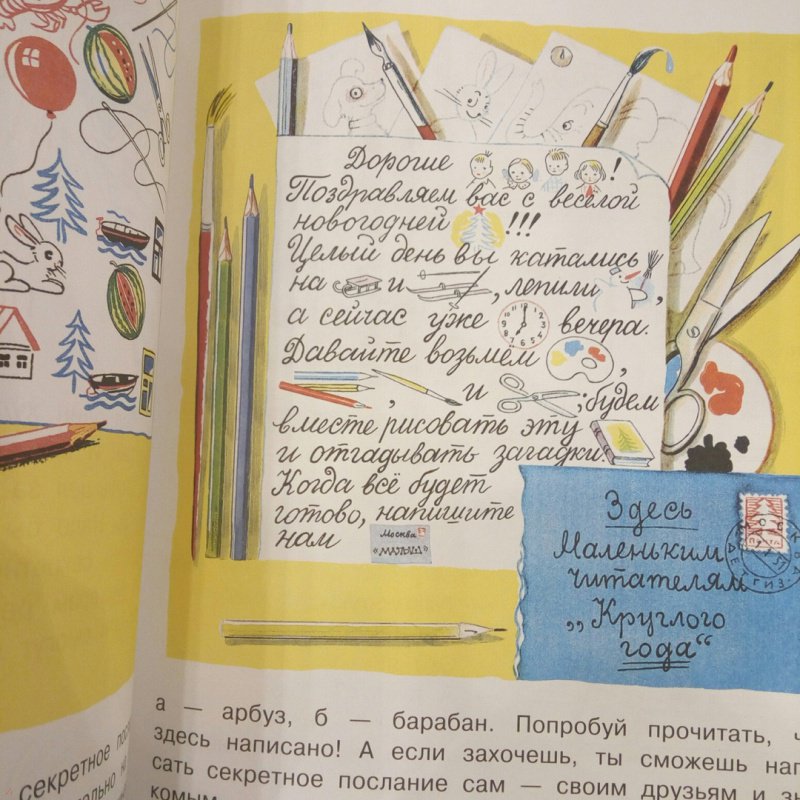 Дорогие !
Поздравляем вас с весёлой
новогодней !!!
Целый день вы катались
на и , лепили ,
а сейчас уже вечера.
Давайте возьмём ,
, и ; будем
вместе рисовать эту
и отгадывать загадки.
Когда всё будет
готово, напишите
нам
Москва
„Малыш“
Здесь
Маленьким
читателям
„Круглого
года“
а — арбуз, б — барабан. Попробуй прочитать,
здесь написано! А если захочешь, ты сможешь
сать секретное послание сам — своим друзьям и
секретное